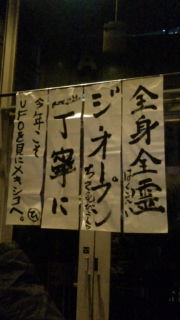 全身全霊
ジ・オープン
丁寧に
今年こそ
UFOを見にメキシコへ。